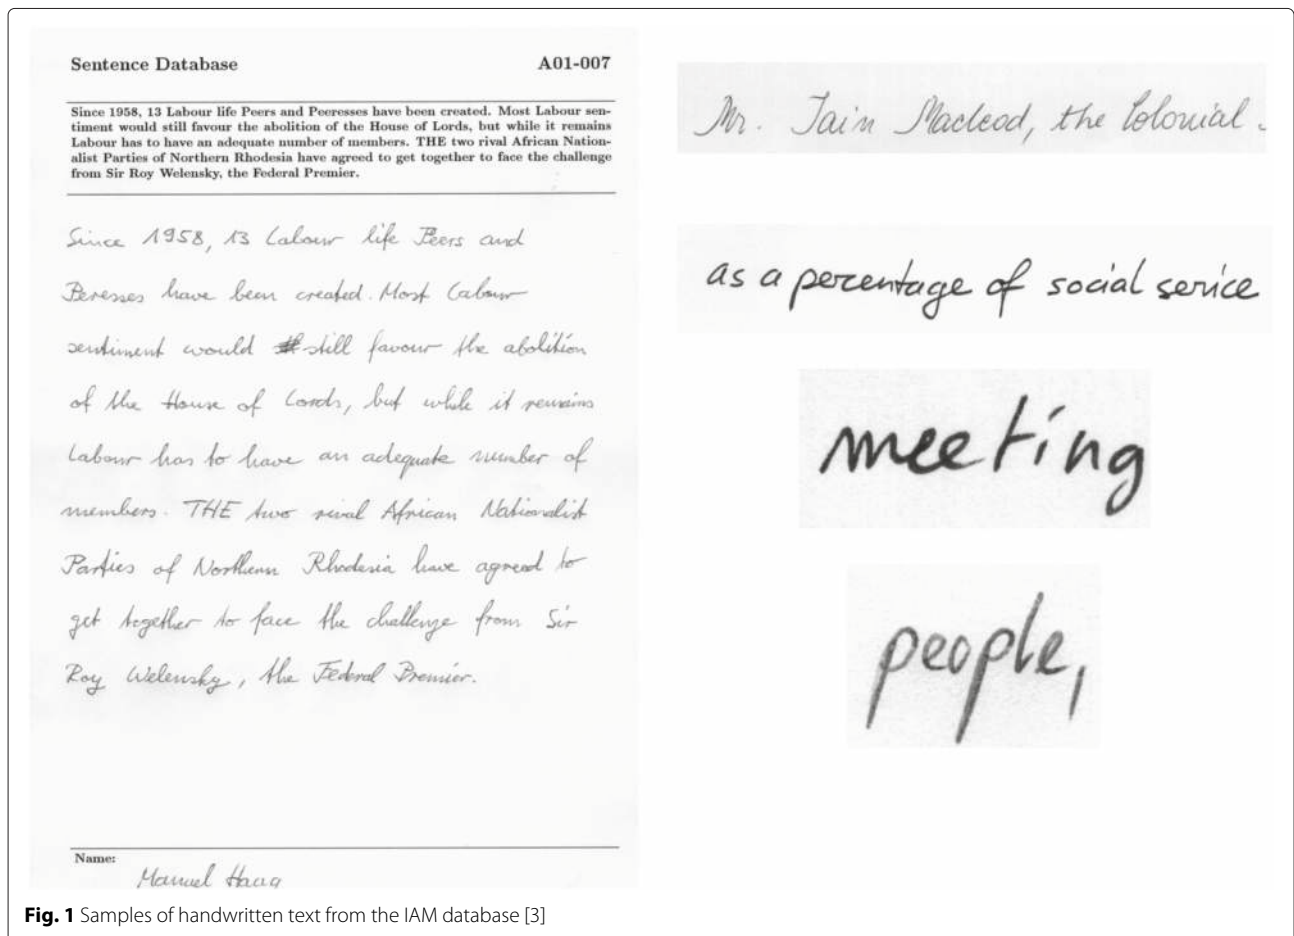 Sentence Database A01-007
Since 1958, 13 Labour life Peers and Peeresses have been created. Most Labour sen-
timent would still favour the abolition of the House of Lords, but while it remains
Labour has to have an adequate number of members. THE two rival African Nation-
alist Parties of Northern Rhodesia have agreed to get together to face the challenge
from Sir Roy Welensky, the Federal Premier.
Since 1958, 13 Labour life Peers and
Peresses have been created. Most Labour
sentiment would still favour the abolition
of the House of Lords, but while it remains
Labour has to have an adequate number of
members. THE two rival African Nationalist
Parties of Northern Rhodesia have agreed to
get together to face the challenge from Sir
Roy Welensky, the Federal Premier.
Name:
Manuel Haag
Mr. Iain Macleod, the Colonial
as a percentage of social serice
meeting
people,
Fig. 1 Samples of handwritten text from the IAM database [3]